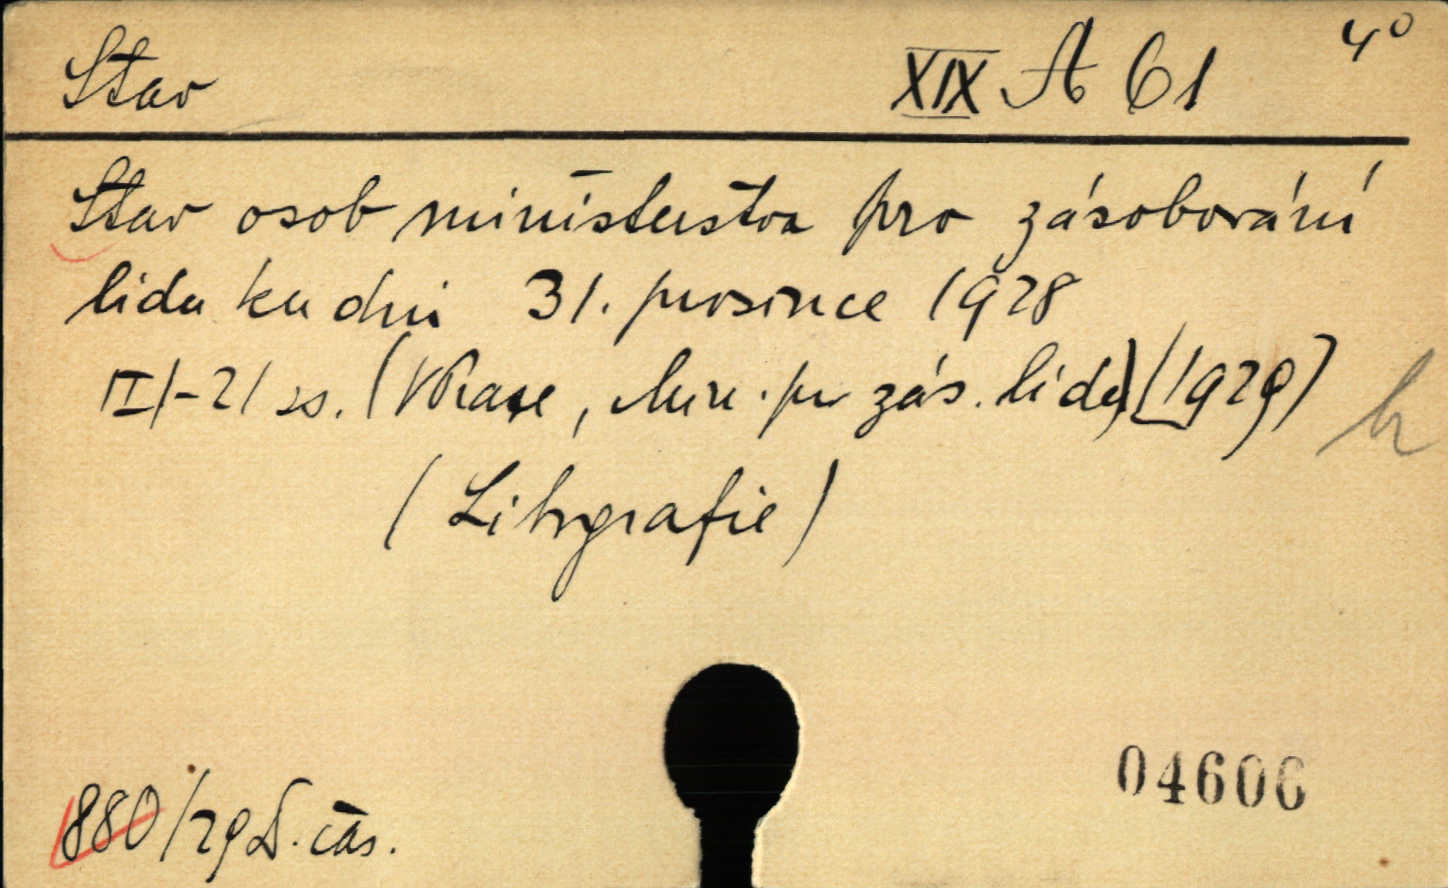 Stav XIX A 61 4°
Stav osob ministerstva pro zásobování
lidu ku dni 31. prosince 1928
II/-21 ss. (V Praze, Min. pr zás. lidu) (1929)
(Litografie)
880/29 D. čas.
04606